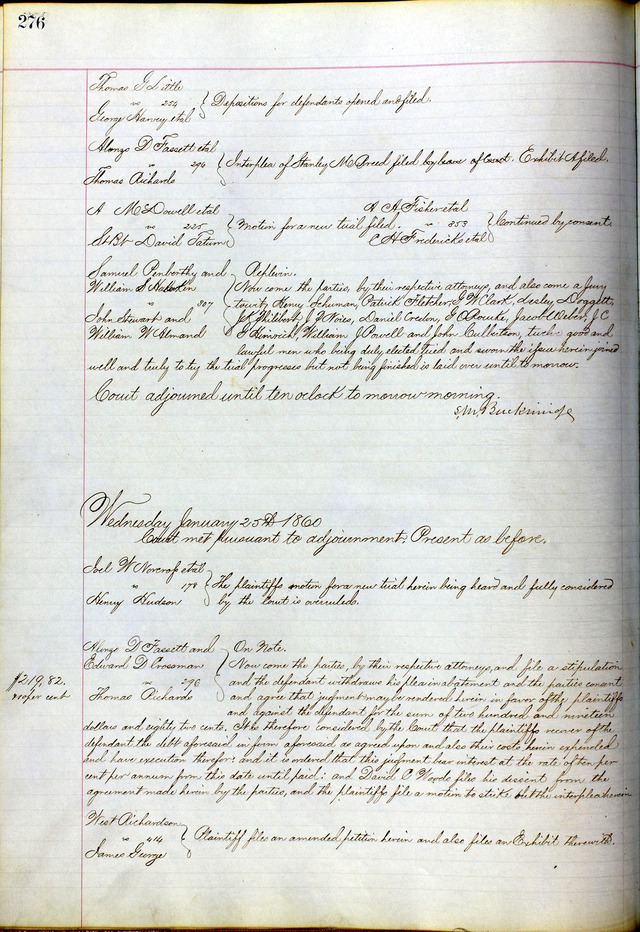 276
Thomas G Little
" 254 } Depositions for defendants opened and filed.
George Harvey etal
Alonzo D Fassett etal
" 296 } Interplea of Stanley M Breed filed by leave of Court. Exhibit A filed.
Thomas Richards
A McDowell etal
" 225 } Motion for a new trial filed.
StBt David Tatum
A A Fisher etal
" 353 } Continued by consent
C H Fredericks etal
Samuel Penborthy and } Replevin.
William S } Now come the parties, by their respective attorneys, and also come a Jury
" 307 towit, Henry Schuman, Patrick Fletcher, J W Clark, Lesley Doggett,
John Stewart and Philibert, J Voice, Daniel Credon, J O'Rourke, Jacob Weber, J C
William W Almand William J Powell and John Culbertson, twelve good and
lawful men who being duly elected tried and sworn the issue herein joined
well and truly to try the trial progresses but not being finished is laid over until to-morrow.
Court adjourned until ten oclock to morrow morning.
S. M. Breckinridge
Wednesday January 25th 1860
Court met pursuant to adjournment: Present as before.
Joel W Norcross etal
" 178 } The plaintiffs motion for a new trial herein being heard and fully considered
Henry Hudson by the Court is overruled.
Alonzo D Fassett and } On Note.
Edward D Crossman } Now come the parties, by their respective attorneys, and file a stipulation
$219,82. " 296 and the defendant withdraws his plea in abatement and the parties consent
10 per cent Thomas Richards and agree that judgment may be rendered herein in favor of the plaintiffs
and against the defendant for the sum of two hundred and nineteen
dollars and eighty two cents. It is therefore considered by the Court that the plaintiffs recover of the
defendant the debt aforesaid in form aforesaid as agreed upon and also their costs herein expended
and have execution therefor: and it is ordered that this judgment bear interest at the rate of ten per
cent per annum from this date until paid: and David C files his dissent from the
agreement made herein by the parties, and the plaintiffs file a motion to strike out the interplea herein
West Richardson
" 414 } Plaintiff files an amended petition herein and also files an Exhibit therewith.
James George